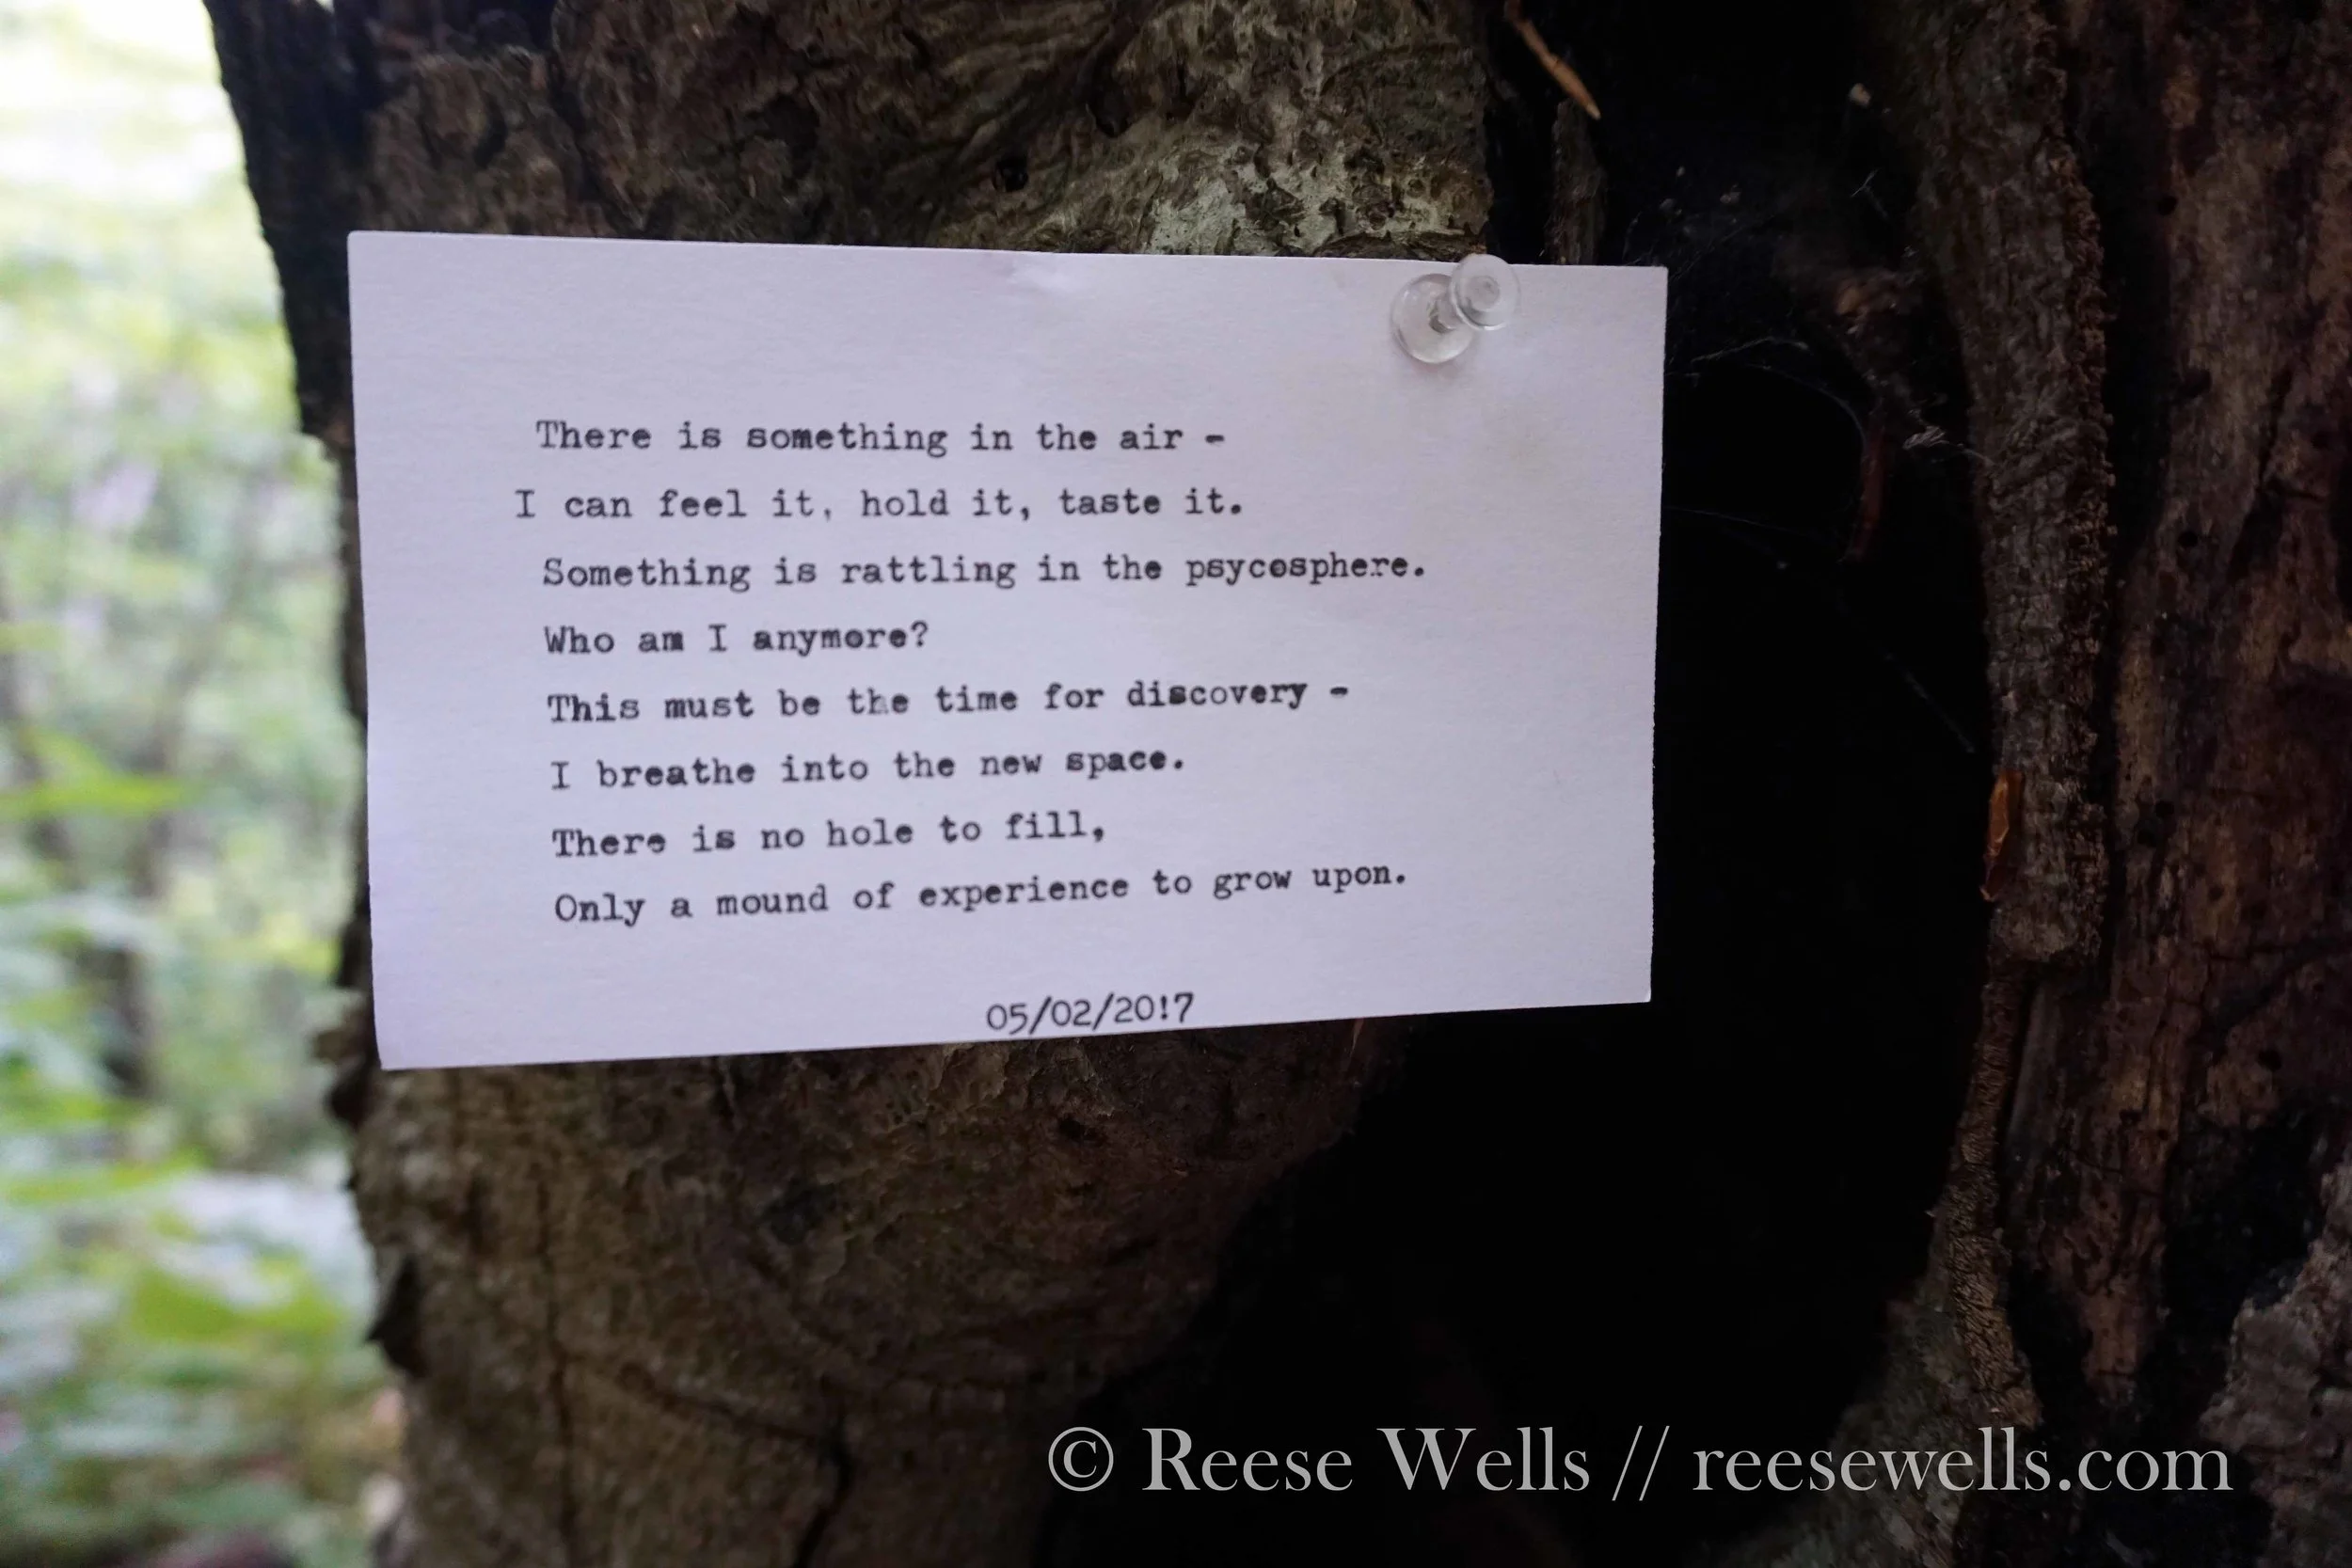 There is something in the air -
I can feel it, hold it, taste it.
Something is rattling in the psycosphere.
Who am I anymore?
This must be the time for discovery -
I breathe into the new space.
There is no hole to fill,
Only a mound of experience to grow upon.
05/02/20!7
© Reese Wells // reesewells.com